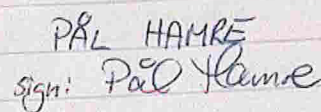 PÅL HAMRE
sign: Pål Hamre